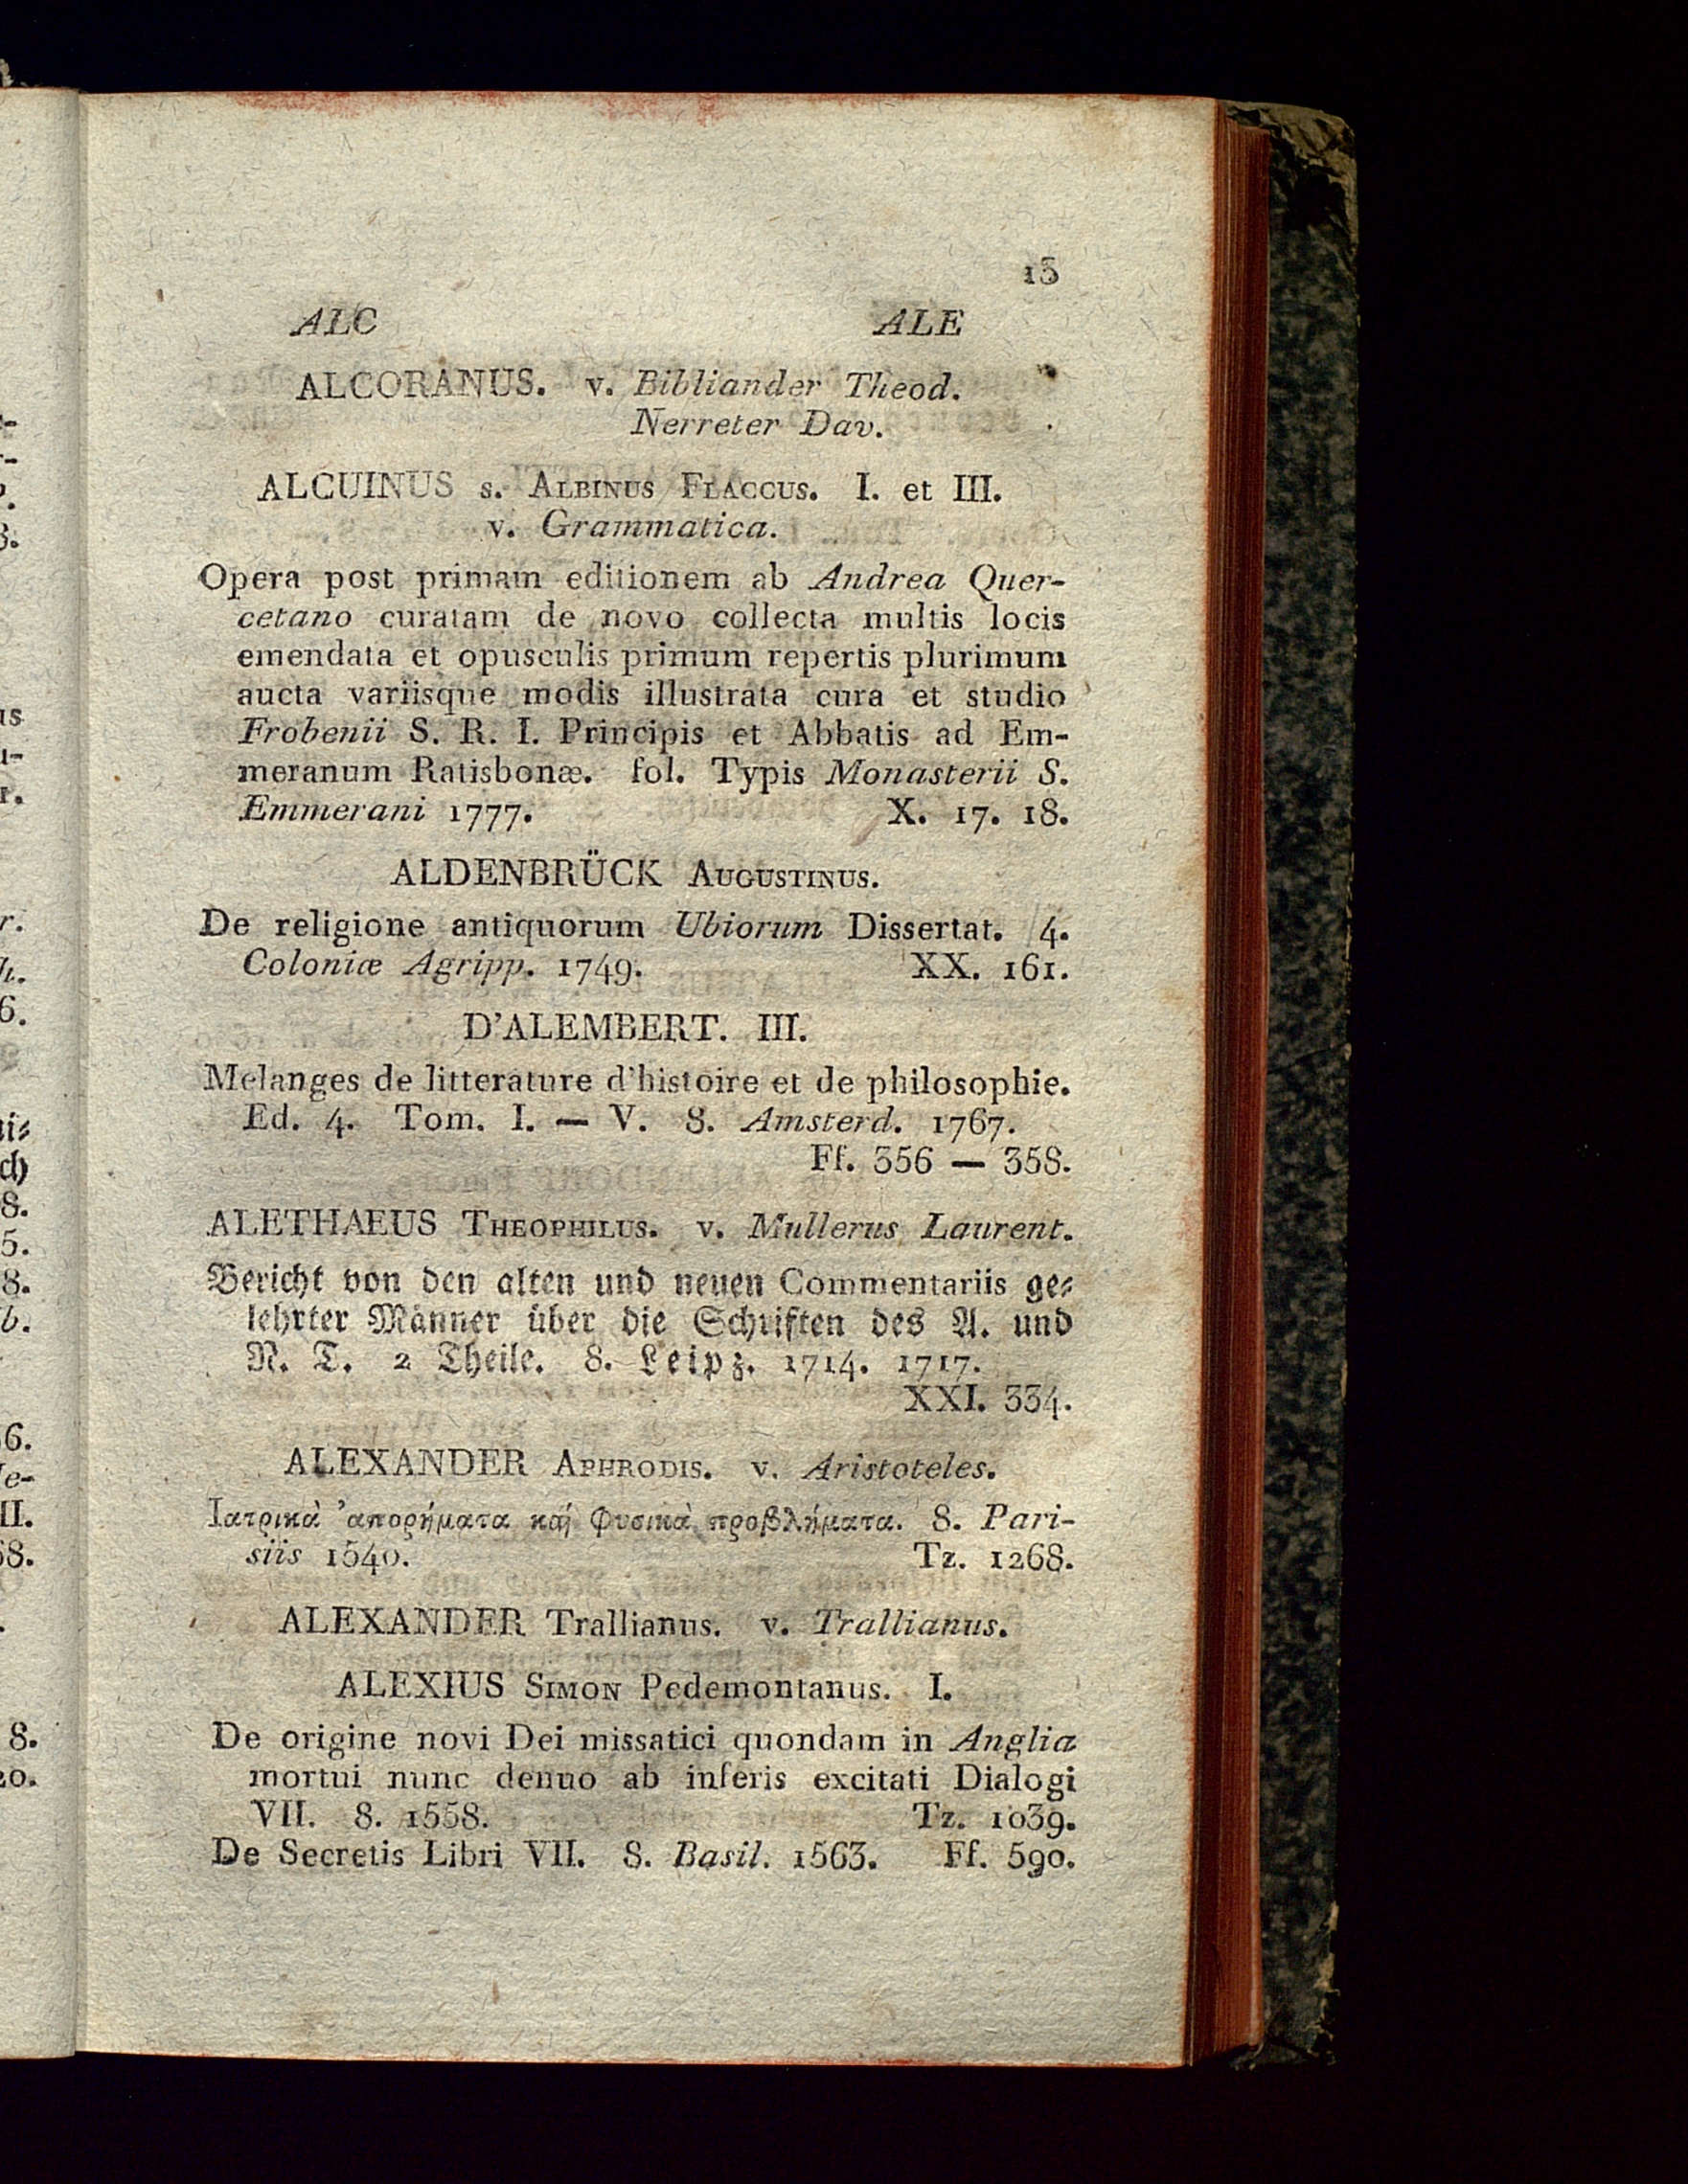 15
ALC ALE
ALCORANUS. v. Bibliander Theod.
Nerreter Dav.
ALCUINUS s. ALBINUS FLACCUS. I. et III.
v. Grammatica.
Opera post primam editionem ab Andrea Quer-
cetano curatam de novo collecta multis locis
emendata et opusculis primum repertis plurimum
aucta variisque modis illustrata cura et studio
Frobenii S. R. I. Principis et Abbatis ad Em-
meranum Ratisbonæ. fol. Typis Monasterii S.
Emmerani 1777. X. 17. 18.
ALDENBRÜCK AUGUSTINUS.
De religione antiquorum Ubiorum Dissertat. 4.
Coloniæ Agripp. 1749. XX. 161.
D'ALEMBERT. III.
Melanges de litterature d'histoire et de philosophie.
Ed. 4. Tom. I. — V. 8. Amsterd. 1767.
Ff. 356 — 358.
ALETHAEUS THEOPHILUS. v. Mullerus Laurent.
Bericht von den alten und neuen Commentariis ge-
lehrter Männer über die Schriften des A. und
N. T. 2 Theile. 8. Leipz. 1714. 1717.
XXI. 334.
ALEXANDER APHRODIS. v. Aristoteles.
Ιατρικὰ 'απορήματα καὶ Φυσικὰ προβλήματα. 8. Pari-
siis 1540. Tz. 1268.
ALEXANDER Trallianus. v. Trallianus.
ALEXIUS SIMON Pedemontanus. I.
De origine novi Dei missatici quondam in Anglia
mortui nunc denuo ab inferis excitati Dialogi
VII. 8. 1558. Tz. 1039.
De Secretis Libri VII. 8. Basil. 1563. Ff. 590.